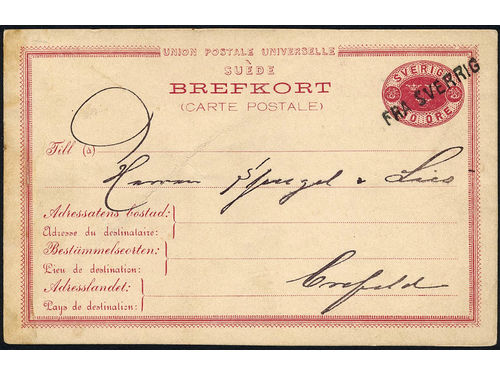 UNION POSTALE UNIVERSELLE
SUÈDE
BREFKORT
(CARTE POSTALE)
SVERIGE
ÖRE
FRA SVERRIG
Till (à)
Herren Spengel &
Adressatens bostad:
Adresse du destinataire:
Bestämmelseorten:
Lieu de destination:
Crefeld
Adresslandet:
Pays de destination: